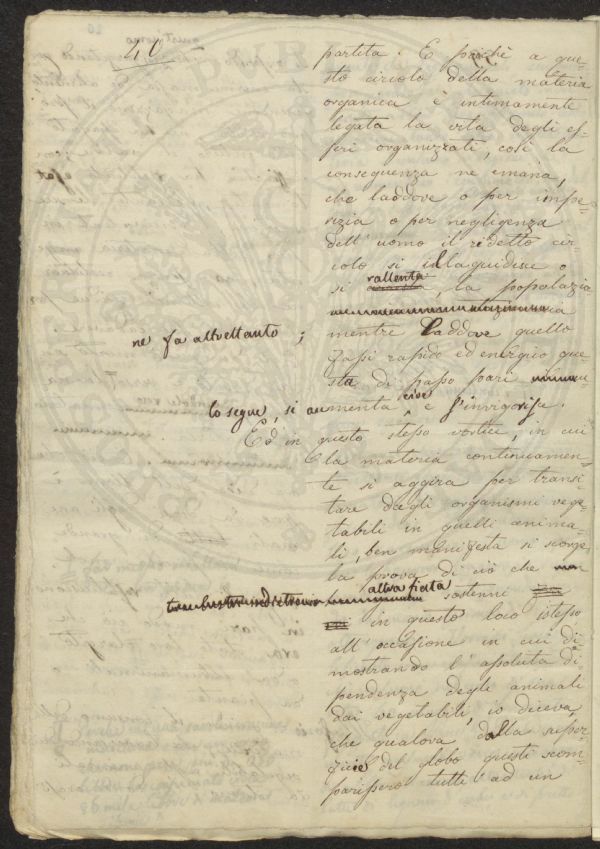 40
partita. E poichè a que-
sto circolo della materia
organica è intimamente
legata la vita degli es-
seri organizzati, così la
conseguenza ne emana,
che laddove o per impe-
rizia o per negligenza
dell' uomo il ridetto cir-
colo si illaguidisce o
si rallenta, la popolazio
ne fa altrettanto;
mentre laddove quello
fassi rapido ed energico que
sta di passo pari
lo segue, si aumenta cioè e s'invigorisce.
Ed in questo stesso vortice, in cui
la materia continuamen-
te si aggira per transi-
tare dagli organismi vege-
tabili in quelli anima-
li, ben manifesta si scorge
la prova di ciò che
altra fiata sostenni
in questo loco istesso
all' occasione in cui di
mostrando l' assoluta di
pendenza degli animali
dai vegetabili, io diceva,
che qualora dalla super-
ficie del globo questi scom-
parissero tutti ad un